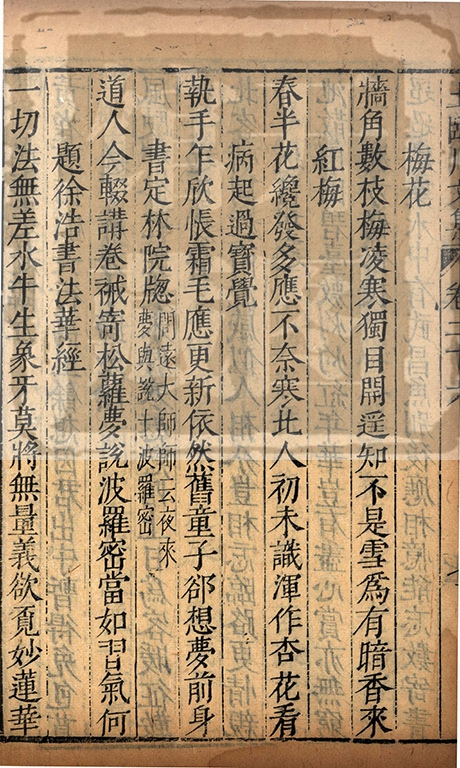 梅花
牆角數枝梅凌寒獨自開遥知不是雪爲有暗香來
紅梅
春半花纔發多應不奈寒北人初未識渾作杏花看
病起過寶覺
執手乍欣悵霜毛應更新依然舊童子郤想夢前身
書定林院牎問遠大師師云夜來夢與說十波羅密
道人今輟講卷祴寄松蘿夢說波羅密當如習氣何
題徐浩書法華經
一切法無差水牛生象牙莫將無量義欲覓妙蓮華